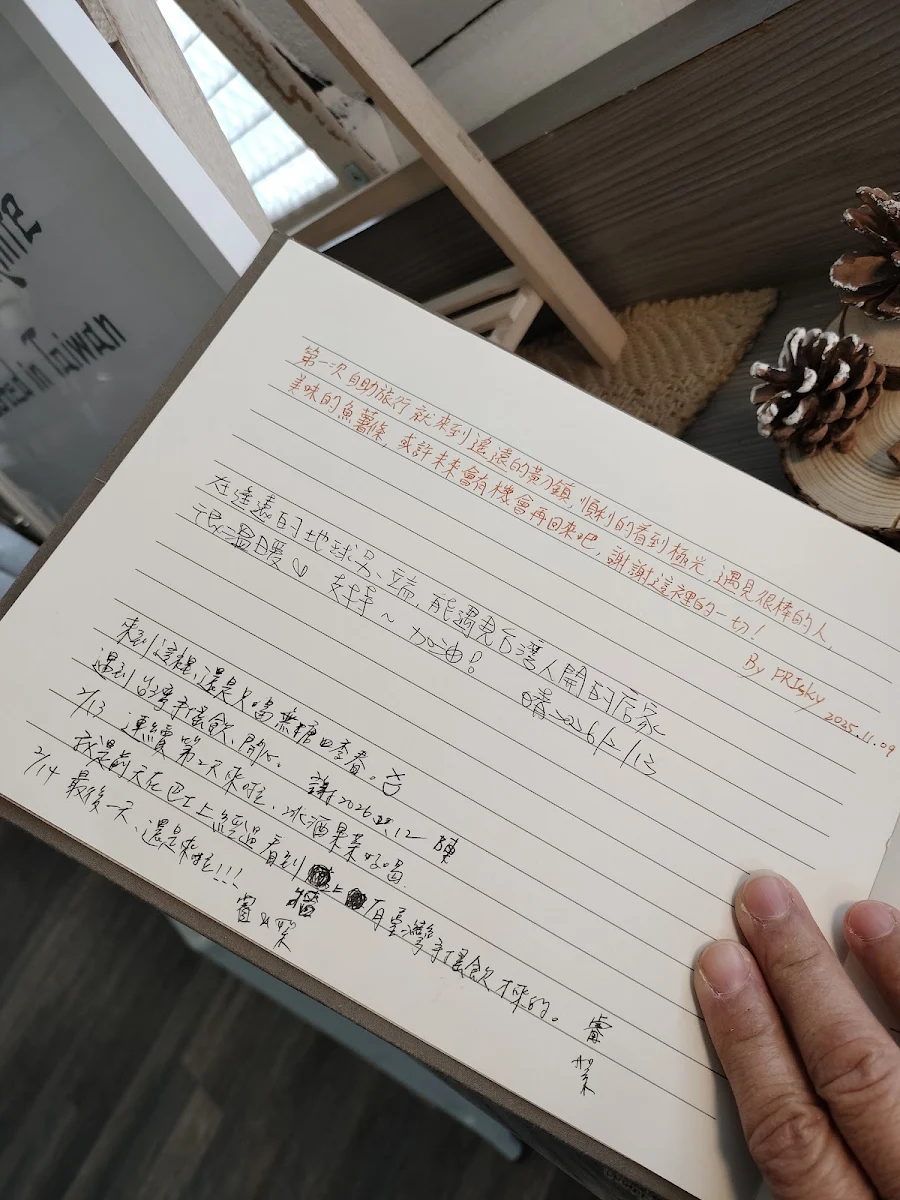 in Taiwan
第一次自助旅行就來到遙遠的黃刀鎮，順利的看到極光，遇見很棒的人，
美味的魚薯條，或許未來會有機會再回來吧，謝謝這裡的一切！
By FRIsky
2025.11.09
在遙遠的地球另一端，能遇見台灣人開的店家
很溫暖 支持～ 加油！
晴 2026/2/13
來到這裡還是只喝無糖四季春。
遇到台灣手搖飲、開心。 謝 2026.2.12
2/13 連續第2天來啦，冰酒果茶好喝。
我是前天在巴士上經過看到牆上有臺灣手搖飲才來的。
2/14 最後一天、還是來啦!!!